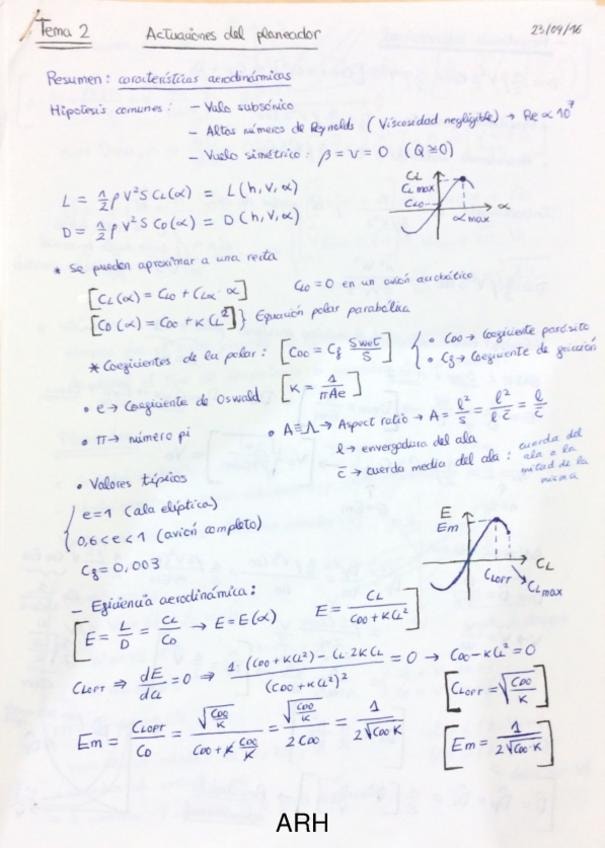 Tema 2 Actuaciones del planeador 23/09/16
Resumen: características aerodinámicas
Hipótesis comunes: - Vuelo subsónico
- Altos números de Reynolds (Viscosidad negligible) → Re ∝ 10⁷
- Vuelo simétrico: β = ν = 0 (Q ≅ 0)
L = 1/2 ρ V² S CL(α) = L(h, V, α)
D = 1/2 ρ V² S CD(α) = D(h, V, α)
CL
CLmax
CL0
α
αmax
* Se pueden aproximar a una recta
[CL(α) = CL0 + CLα · α] CL0 = 0 en un avión acrobático
[CD(α) = CD0 + K CL²] } Equación polar parabólica
* Coeficientes de la polar: [CD0 = Cf Swet/S] { • CD0 → Coeficiente parásito
• Cf → Coeficiente de fricción
• e → Coeficiente de Oswald [K = 1/πAe]
• π → número pi
• A ≡ Λ → Aspect ratio → A = l²/S = l²/l c̄ = l/c̄
l → envergadura del ala
c̄ → cuerda media del ala: cuerda del ala a la mitad de la misma
• Valores típicos
{ e = 1 (ala elíptica)
0,6 < e < 1 (avión completo)
Cf = 0,003
E
Em
CL
CLOPT
CLmax
- Eficiencia aerodinámica:
[E = L/D = CL/CD → E = E(α) E = CL/CD0 + KCL²]
CLOPT ⇒ dE/dCL = 0 ⇒ 1·(CD0 + KCL²) - CL·2KCL/(CD0 + KCL²)² = 0 → CD0 - KCL² = 0
[CLOPT = √CD0/K]
Em = CLOPT/CD = √CD0/K / CD0 + K CD0/K = √CD0/K / 2CD0 = 1/2√CD0·K
[Em = 1/2√CD0·K]
ARH